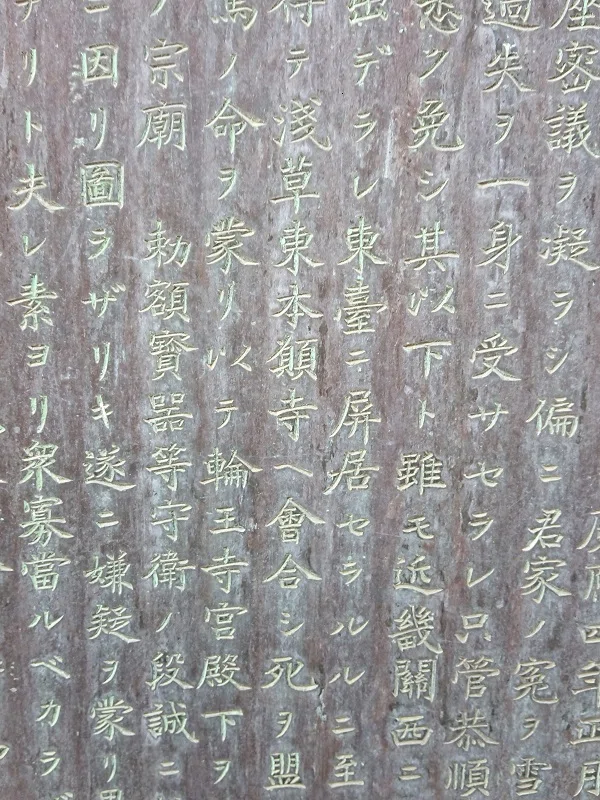 慶應四年正月
座密議ヲ凝ラシ偏ニ君家ノ冤ヲ雪
過失ヲ一身ニ受サセラレ只管恭順
悉ク免シ其以下ト雖モ近畿關西ニ
出デラレ東臺ニ屏居セラルルニ至
テ浅草東本願寺ヘ會合シ死ヲ盟
ノ命ヲ蒙リ以テ輪王寺宮殿下ヲ
ノ宗廟 勅額寳器等守衛ノ段誠ニ
ニ因リ圖ラザリキ遂ニ嫌疑ヲ蒙リ
リト夫レ素ヨリ衆寡當ルベカラザ